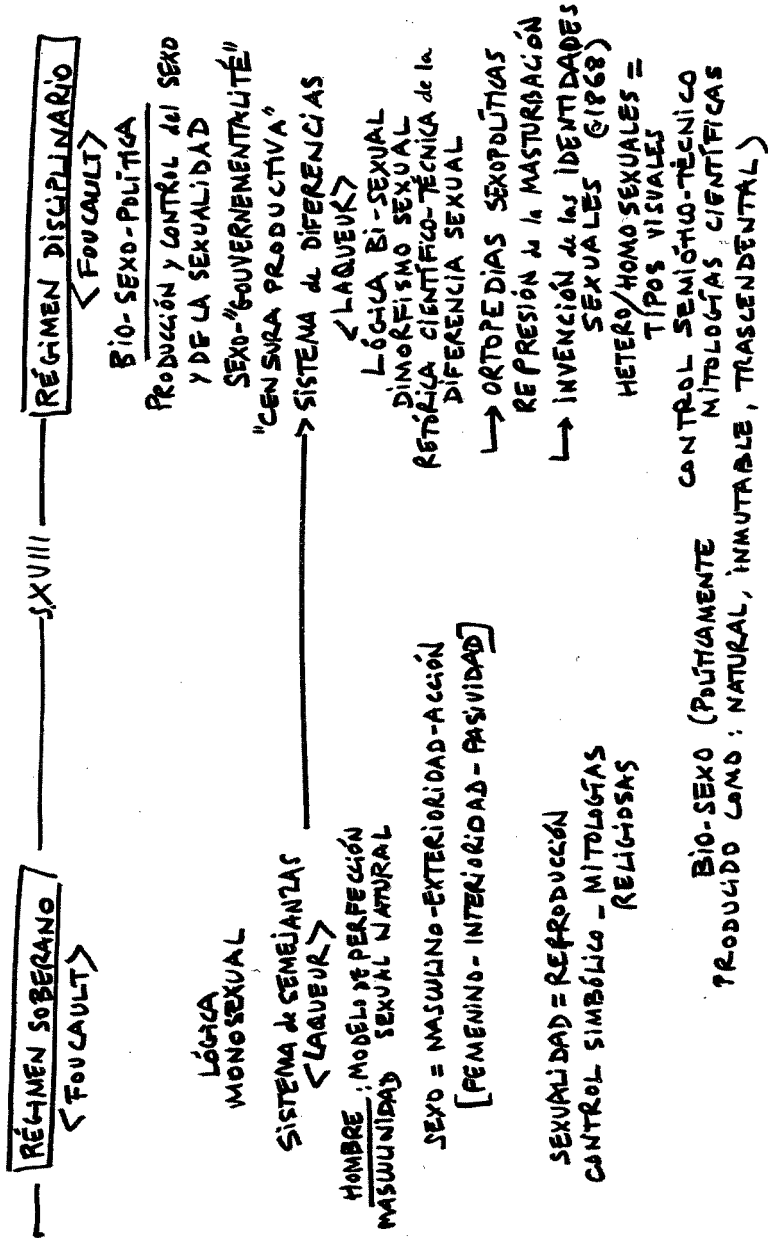 RÉGIMEN SOBERANO
<FOUCAULT>
LÓGICA
MONOSEXUAL
SISTEMA de SEMEJANZAS
<LAQUEUR>
HOMBRE: MODELO DE PERFECCIÓN
MASCULINIDAD SEXUAL NATURAL
SEXO = MASCULINO-EXTERIORIDAD-ACCIÓN
[FEMENINO-INTERIORIDAD-PASIVIDAD]
SEXUALIDAD = REPRODUCCIÓN
CONTROL SIMBÓLICO - MITOLOGÍAS
RELIGIOSAS
S.XVIII
RÉGIMEN DISCIPLINARIO
<FOUCAULT>
BIO-SEXO-POLÍTICA
PRODUCCIÓN y CONTROL del SEXO
Y DE LA SEXUALIDAD
SEXO-"GOUVERNEMENTALITÉ"
"CENSURA PRODUCTIVA"
> SISTEMA de DIFERENCIAS
<LAQUEUR>
LÓGICA BI-SEXUAL
DIMORFISMO SEXUAL
RETÓRICA CIENTÍFICO-TÉCNICA de la
DIFERENCIA SEXUAL
↳ ORTOPEDIAS SEXOPOLÍTICAS
REPRESIÓN de la MASTURBACIÓN
↳ INVENCIÓN de las IDENTIDADES
SEXUALES (@1868)
HETERO/HOMO SEXUALES =
TIPOS VISUALES
CONTROL SEMIÓTICO-TÉCNICO
MITOLOGÍAS CIENTÍFICAS
BIO-SEXO (POLÍTICAMENTE
PRODUCIDO COMO: NATURAL, INMUTABLE, TRASCENDENTAL)